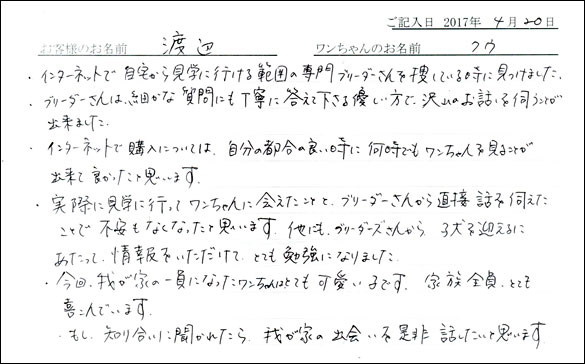 ご記入日 2017年 4月20日
お客様のお名前 渡辺 ワンちゃんのお名前 フウ
・インターネットで自宅から見学に行ける範囲の専門ブリーダーさんを捜している時に見つけました。
・ブリーダーさんは、細かな質問にも丁寧に答えて下さる優しい方で、沢山のお話を伺うことが
出来ました。
・インターネットで購入については、自分の都合の良い時に何時でもワンちゃんを見ることが
出来て良かったと思います。
・実際に見学に行ってワンちゃんに会えたことと、ブリーダーさんから直接話を伺えた
ことで不安もなくなったと思います。他にも、ブリーダーズさんから 子犬を迎えるに
あたって、情報をいただけて、とても勉強になりました。
・今回、我が家の一員になったワンちゃんはとても可愛い子です。家族全員、とても
喜こんでいます。
・もし、知り合いに聞かれたら、我が家の出会いを是非話したいと思います